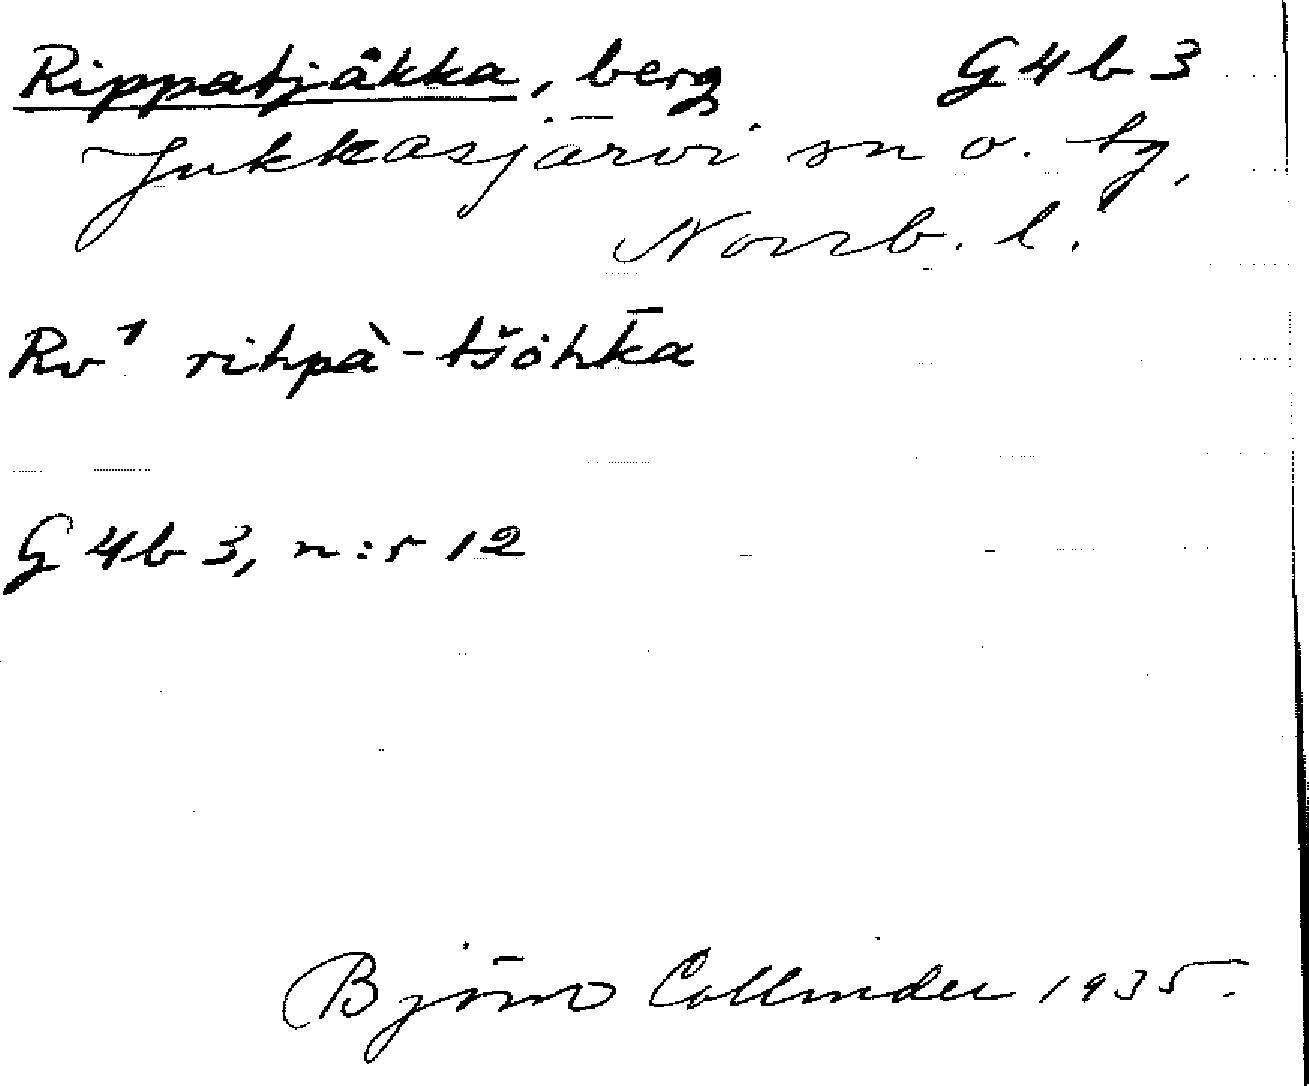 Rippatjåkka, berg G4b3
Jukkasjärvi sn o. tg,
Norrb. l.
Rv¹ rihpà-tšòhk̄a
G4b3, n:r 12
Björn Collinder 1935.